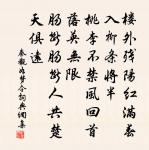 樓外殘陽紅滿春
入柳條將半
桃李不禁風回首
落英無限
腸斷腸斷人共楚
天俱遠
秦觀如夢令詞